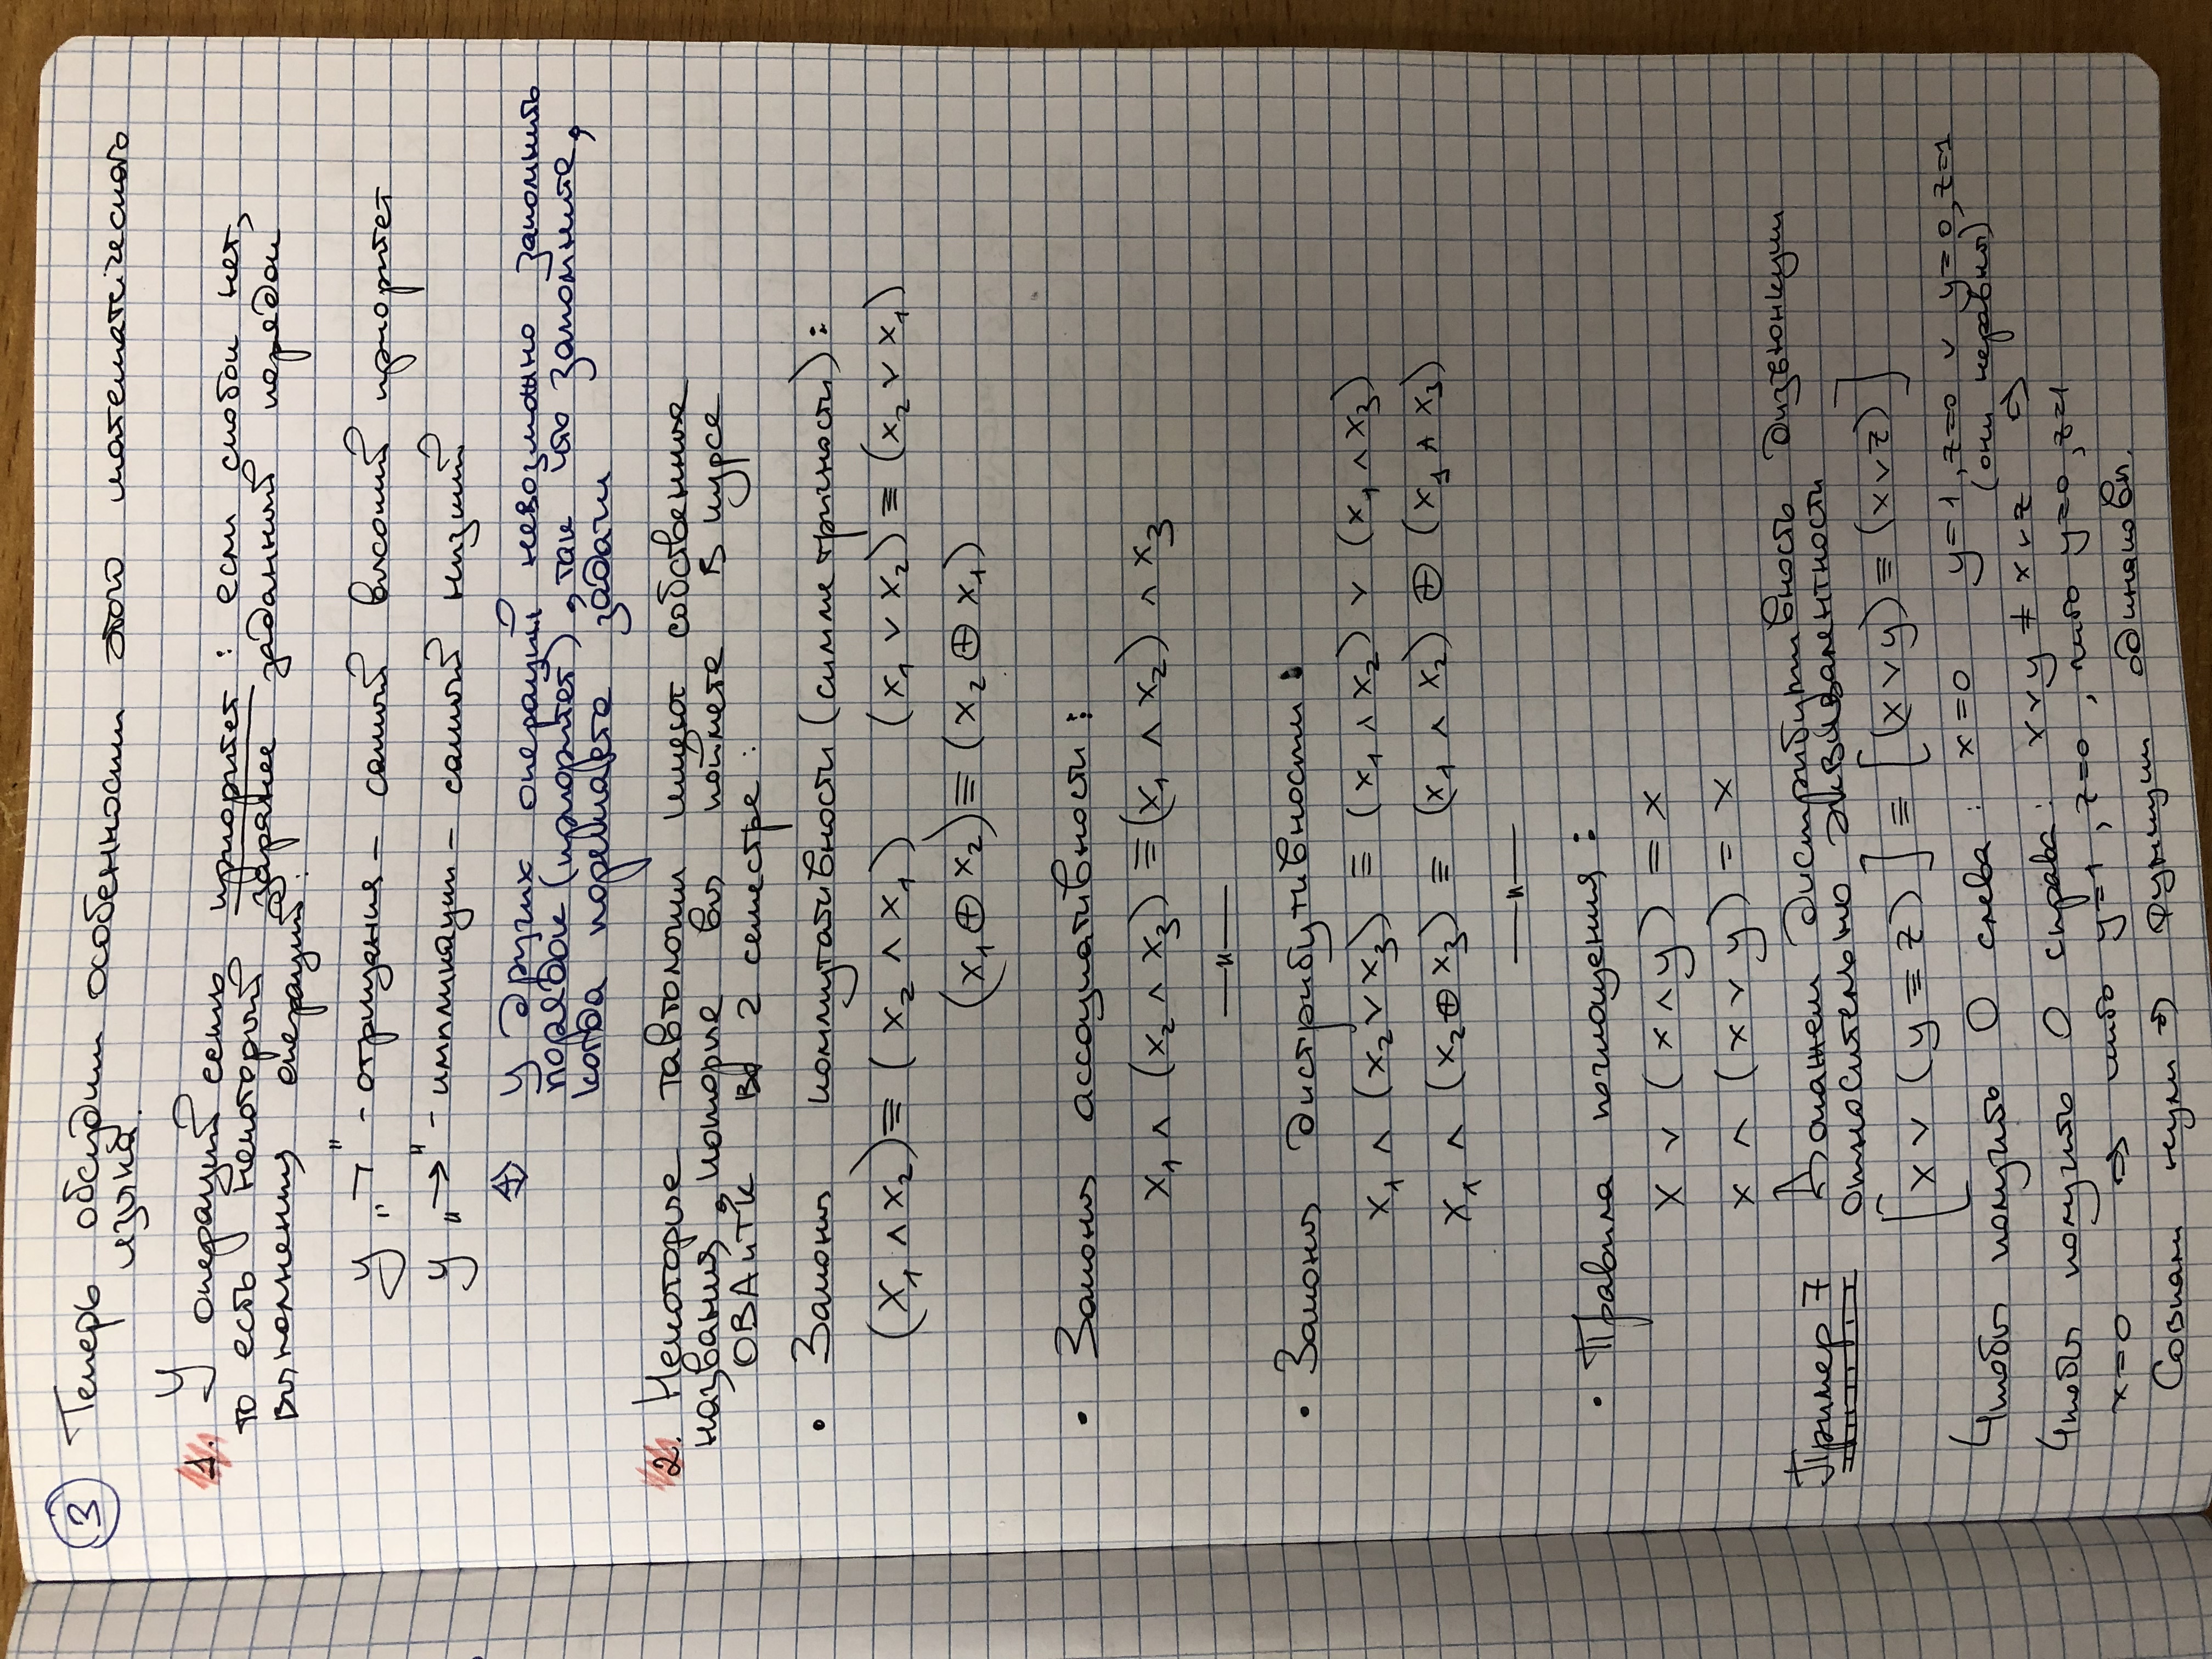 3 Теперь обсудим особенности этого математического
языка.
1. У операций есть приоритет: если скобок нет,
то есть некоторый заранее заданный порядок
выполнения операций:
У „¬" - отрицания – самый высокий приоритет
У „→" - импликации – самый низкий
У других операций невозможно запомнить
порядок (приоритет), так что запомните,
когда порешаете задачи
2. Некоторые тавтологии имеют собственные
названия, которые вы поймете в курсе
ОВАиТК во 2 семестре:
• Законы коммутативности (симметричности):
(x₁ ∧ x₂) ≡ (x₂ ∧ x₁) (x₁ ∨ x₂) ≡ (x₂ ∨ x₁)
(x₁ ⊕ x₂) ≡ (x₂ ⊕ x₁)
• Законы ассоциативности:
x₁ ∧ (x₂ ∧ x₃) ≡ (x₁ ∧ x₂) ∧ x₃
—и—
• Законы дистрибутивности:
x₁ ∧ (x₂ ∨ x₃) ≡ (x₁ ∧ x₂) ∨ (x₁ ∧ x₃)
x₁ ∧ (x₂ ⊕ x₃) ≡ (x₁ ∧ x₂) ⊕ (x₁ ∧ x₃)
—и—
• Правила поглощения:
x ∨ (x ∧ y) = x
x ∧ (x ∨ y) = x
Пример 7 Докажем дистрибутивность дизъюнкции
относительно эквивалентности
[x ∨ (y ≡ z)] ≡ [(x ∨ y) ≡ (x ∨ z)]
Чтобы получить 0 слева: x=0 y=1, z=0 ∨ y=0, z=1
(они неравны)
Чтобы получить 0 справа: x ∨ y ≠ x ∨ z ⇒
x=0 ⇒ либо y=1, z=0, либо y=0, z=1
Совпали нули ⇒ функции одинаковы.